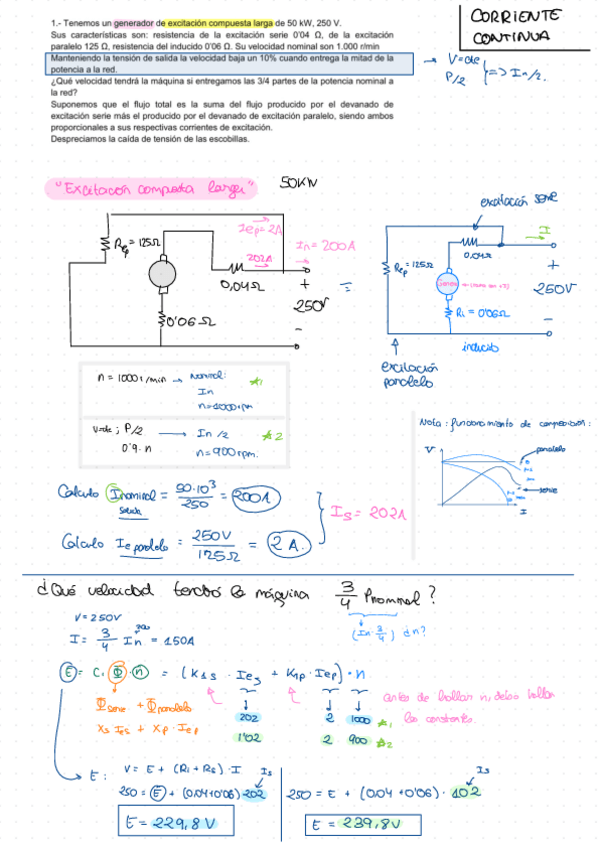 1.- Tenemos un generador de excitación compuesta larga de 50 kW, 250 V.
Sus características son: resistencia de la excitación serie 0'04 Ω, de la excitación
paralelo 125 Ω, resistencia del inducido 0'06 Ω. Su velocidad nominal son 1.000 r/min
Manteniendo la tensión de salida la velocidad baja un 10% cuando entrega la mitad de la
potencia a la red.
¿Qué velocidad tendrá la máquina si entregamos las 3/4 partes de la potencia nominal a
la red?
Suponemos que el flujo total es la suma del flujo producido por el devanado de
excitación serie más el producido por el devanado de excitación paralelo, siendo ambos
proporcionales a sus respectivas corrientes de excitación.
Despreciamos la caída de tensión de las escobillas.
CORRIENTE
CONTINUA
→ V=cte
P/2 } => In/2.
"Excitación compuesta larga" 50KW
Iep=2A
Rep = 125Ω
202A
In = 200A
0,04Ω
+
250V
-
0'06Ω
=
excitación serie
I
0,04Ω
Rep = 125Ω
+
250V
-
Ri = 0'06Ω
inducido
excitación
paralelo
n = 1000 r/min → Nominal: *1
In
n=1000rpm
V=cte ; P/2 → In/2 *2
0'9·n n=900rpm.
Nota: funcionamiento de composición:
V
paralelo
serie
I
Calculo Inominal = 50·10³/250 = 200A
salida
Is = 202A
Calculo Ie paralelo = 250V/125Ω = 2A.
¿Qué velocidad tendrá la máquina 3/4 Pnominal?
V=250V
I = 3/4 In = 150A
200
(In·3/4) ¿n?
E = C. Φ. n = (K1s · Ies + K1p · Iep) · n
Φserie + Φparalelo
Xs Ies + Xp · Iep
antes de hallar n, debo hallar
las constantes.
202 2 1000 *1
102 2 900 *2
E: V = E + (Ri + Rs) · I Is
250 = E + (0.04+0'06) · 202
E = 229,8V
Is
250 = E + (0.04+0'06) · 102
E = 239,8V